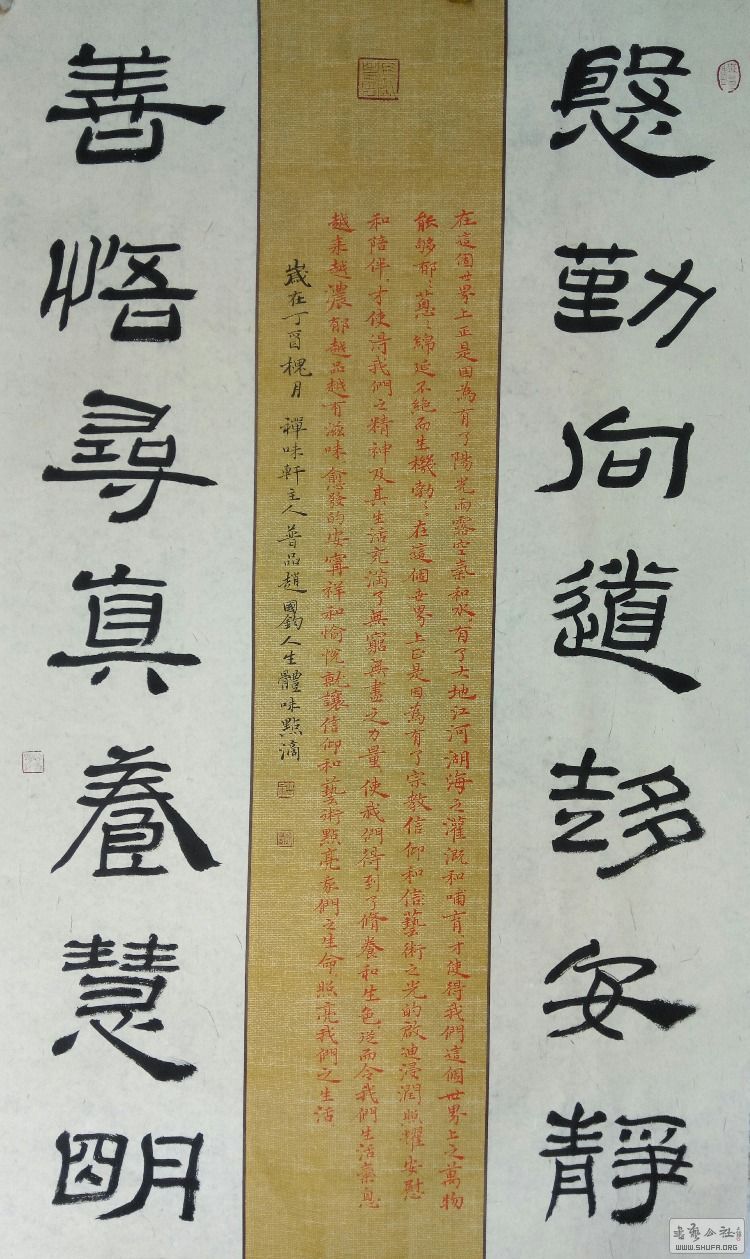 慇勤向道趍安靜
在這個世界上正是因為有了陽光雨露空氣和水有了大地江河湖海之灌溉和哺育才使得我們這個世界上之萬物
能够郁〻蔥〻綿延不絕而生機勃〻在這個世界上正是因為有了宗教信仰和信藝術之光的啟迪浸潤照耀安慰
和陪伴才使得我們之精神及其生活充滿了無窮無盡之力量使我們得到了脩養和生色從而令我們生活氣息
越來越濃郁越品越有滋味愈發的安寧祥和愉悅就讓信仰和藝術點亮我們之生命照亮我們之生活
歲在丁酉槐月 禪味軒主人普品趙國鈞人生體味點滴
善悟尋真養慧朙
書藝公社
WWW.SHUFA.ORG